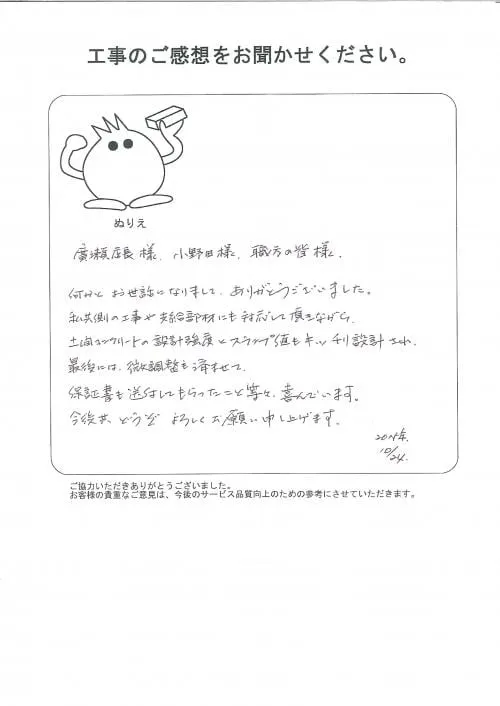 工事のご感想をお聞かせください。
ぬりえ
廣瀬店長様、小野田様、職方の皆様、
何かと お世話になりまして、ありがとうございました。
私共側の工事や 支給部材にも 対応して頂きながら、
土間コンクリートの設計強度とスランプ値もキッチリ設計され、
最後には、微調整も済ませて、
保証書も送付してもらったこと等々、喜んでいます。
今後共、どうぞ よろしくお願い申し上げます。
10/24.
ご協力いただきありがとうございました。
お客様の貴重なご意見は、今後のサービス品質向上のための参考にさせていただきます。